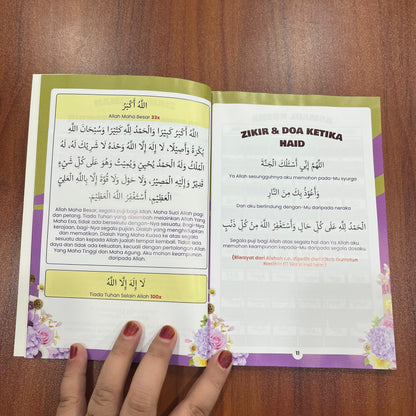 اللَّهُ أَكْبَرُ
Allah Maha Besar 33x
اللَّهُ أَكْبَرُ كَبِيْرًا وَالْحَمْدُ لِلَّهِ كَثِيْرًا وَسُبْحَانَ اللَّهِ
بُكْرَةً وَأَصِيْلًا، لَا إِلَهَ إِلَّا اللَّهُ وَحْدَهُ لَا شَرِيْكَ لَهُ، لَهُ
الْمُلْكُ وَلَهُ الْحَمْدُ يُحْيِيْ وَيُمِيْتُ وَهُوَ عَلَى كُلِّ شَيْءٍ
قَدِيْرٌ وَإِلَيْهِ الْمَصِيْرُ، وَلَا حَوْلَ وَلَا قُوَّةَ إِلَّا بِاللَّهِ الْعَلِيِّ
الْعَظِيْمِ، أَسْتَغْفِرُ اللَّهَ الْعَظِيْمَ.
Allah Maha Besar, segala puji bagi Allah, Maha Suci Allah pagi
dan petang. Tiada Tuhan yang disembah melainkan Allah Yang
Maha Esa, tidak ada bersekutu dengan-Nya sesuatu. Bagi-Nya
kerajaan, bagi-Nya segala pujian. Dialah yang menghidupkan
dan mematikan. Dialah Yang Maha Kuasa ke atas segala
sesuatu dan kepada Allah jualah tempat kembali. Tidak ada
daya dan tidak ada kekuatan, kecuali dengan pertolongan Allah
Yang Maha Tinggi dan Maha Agung. Aku mohon keampunan
daripada Allah.
لَا إِلَهَ إِلَّا اللَّهُ
Tiada Tuhan Selain Allah 100x
ZIKIR & DOA KETIKA
HAID
اللَّهُمَّ إِنِّي أَسْئَلُكَ الْجَنَّةَ
Ya Allah sesungguhnya aku memohon pada-Mu syurga
وَأَعُوْذُ بِكَ مِنَ النَّارِ
Dan aku berlindung dengan-Mu daripada neraka
الْحَمْدُ لِلَّهِ عَلَى كُلِّ حَالٍ وَأَسْتَغْفِرُ اللَّهَ مِنْ كُلِّ ذَنْبٍ
Segala puji bagi Allah atas segala hal dan Ya Allah aku
memohon keampunan kepada-Mu daripada segala dosaku.
(Riwayat dari Aishah r.a. dipetik dari kitab
11